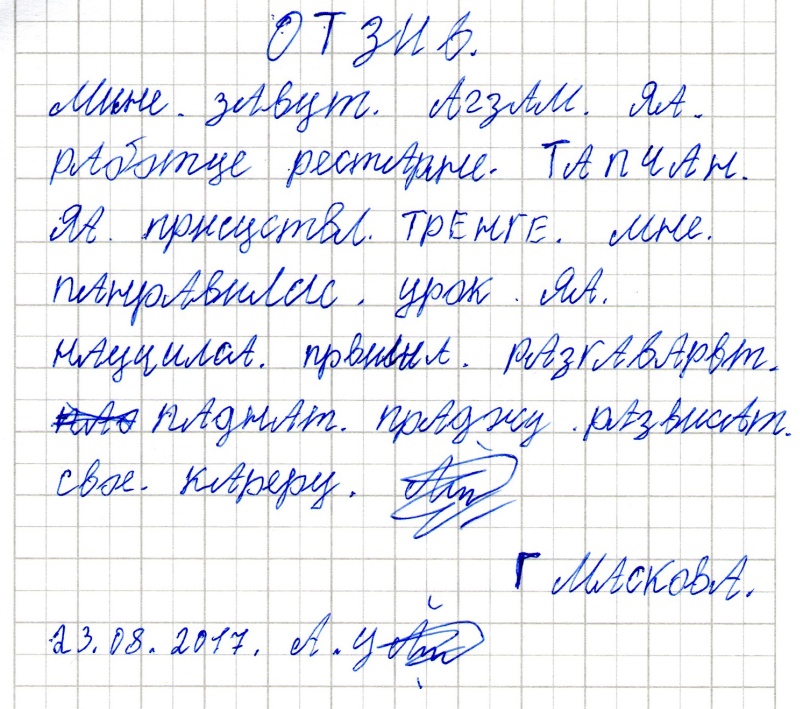 ОТЗИВ.
Мине. зАвут. АгзАМ. ЯА.
рАботце рестАрне. ТАПЧАН.
ЯА. присуствЛ. ТРЕНГЕ. мне.
пАнрАвилсис. урок. ЯА.
нАуцилсА. првилнА. рАзгАвАрвт.
пАднАт. прАджу. рАзвисАт.
свое. кАреру.
Г МАсковА.
23.08.2017. А.У